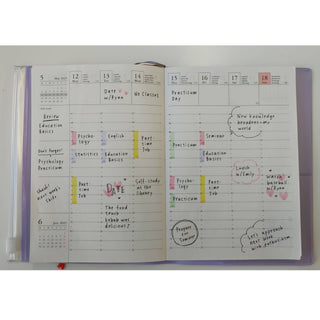 5
12
13
14
15
16
17
18
Date
w/Ryan
No Classes
Practicum
Day
Review
Education
Basics
Don't forget!
Psychology
Practicum
6
Psycho-
logy
Statistics
English
Education
Basics
Part-
time
Job
Part-
time
Job
DATE
The food
truck
kebab was
delicious?
Self-study
at the
library
Practicum
Psycho-
logy
Practicum
Seminar
Statistics
Part-
time
Job
Prepare
for
Seminar
New knowledge
broadens my
world
Lunch
w/Emily
Watch
baseball
w/Ryan
Let's approach
next week
with enthusiasm